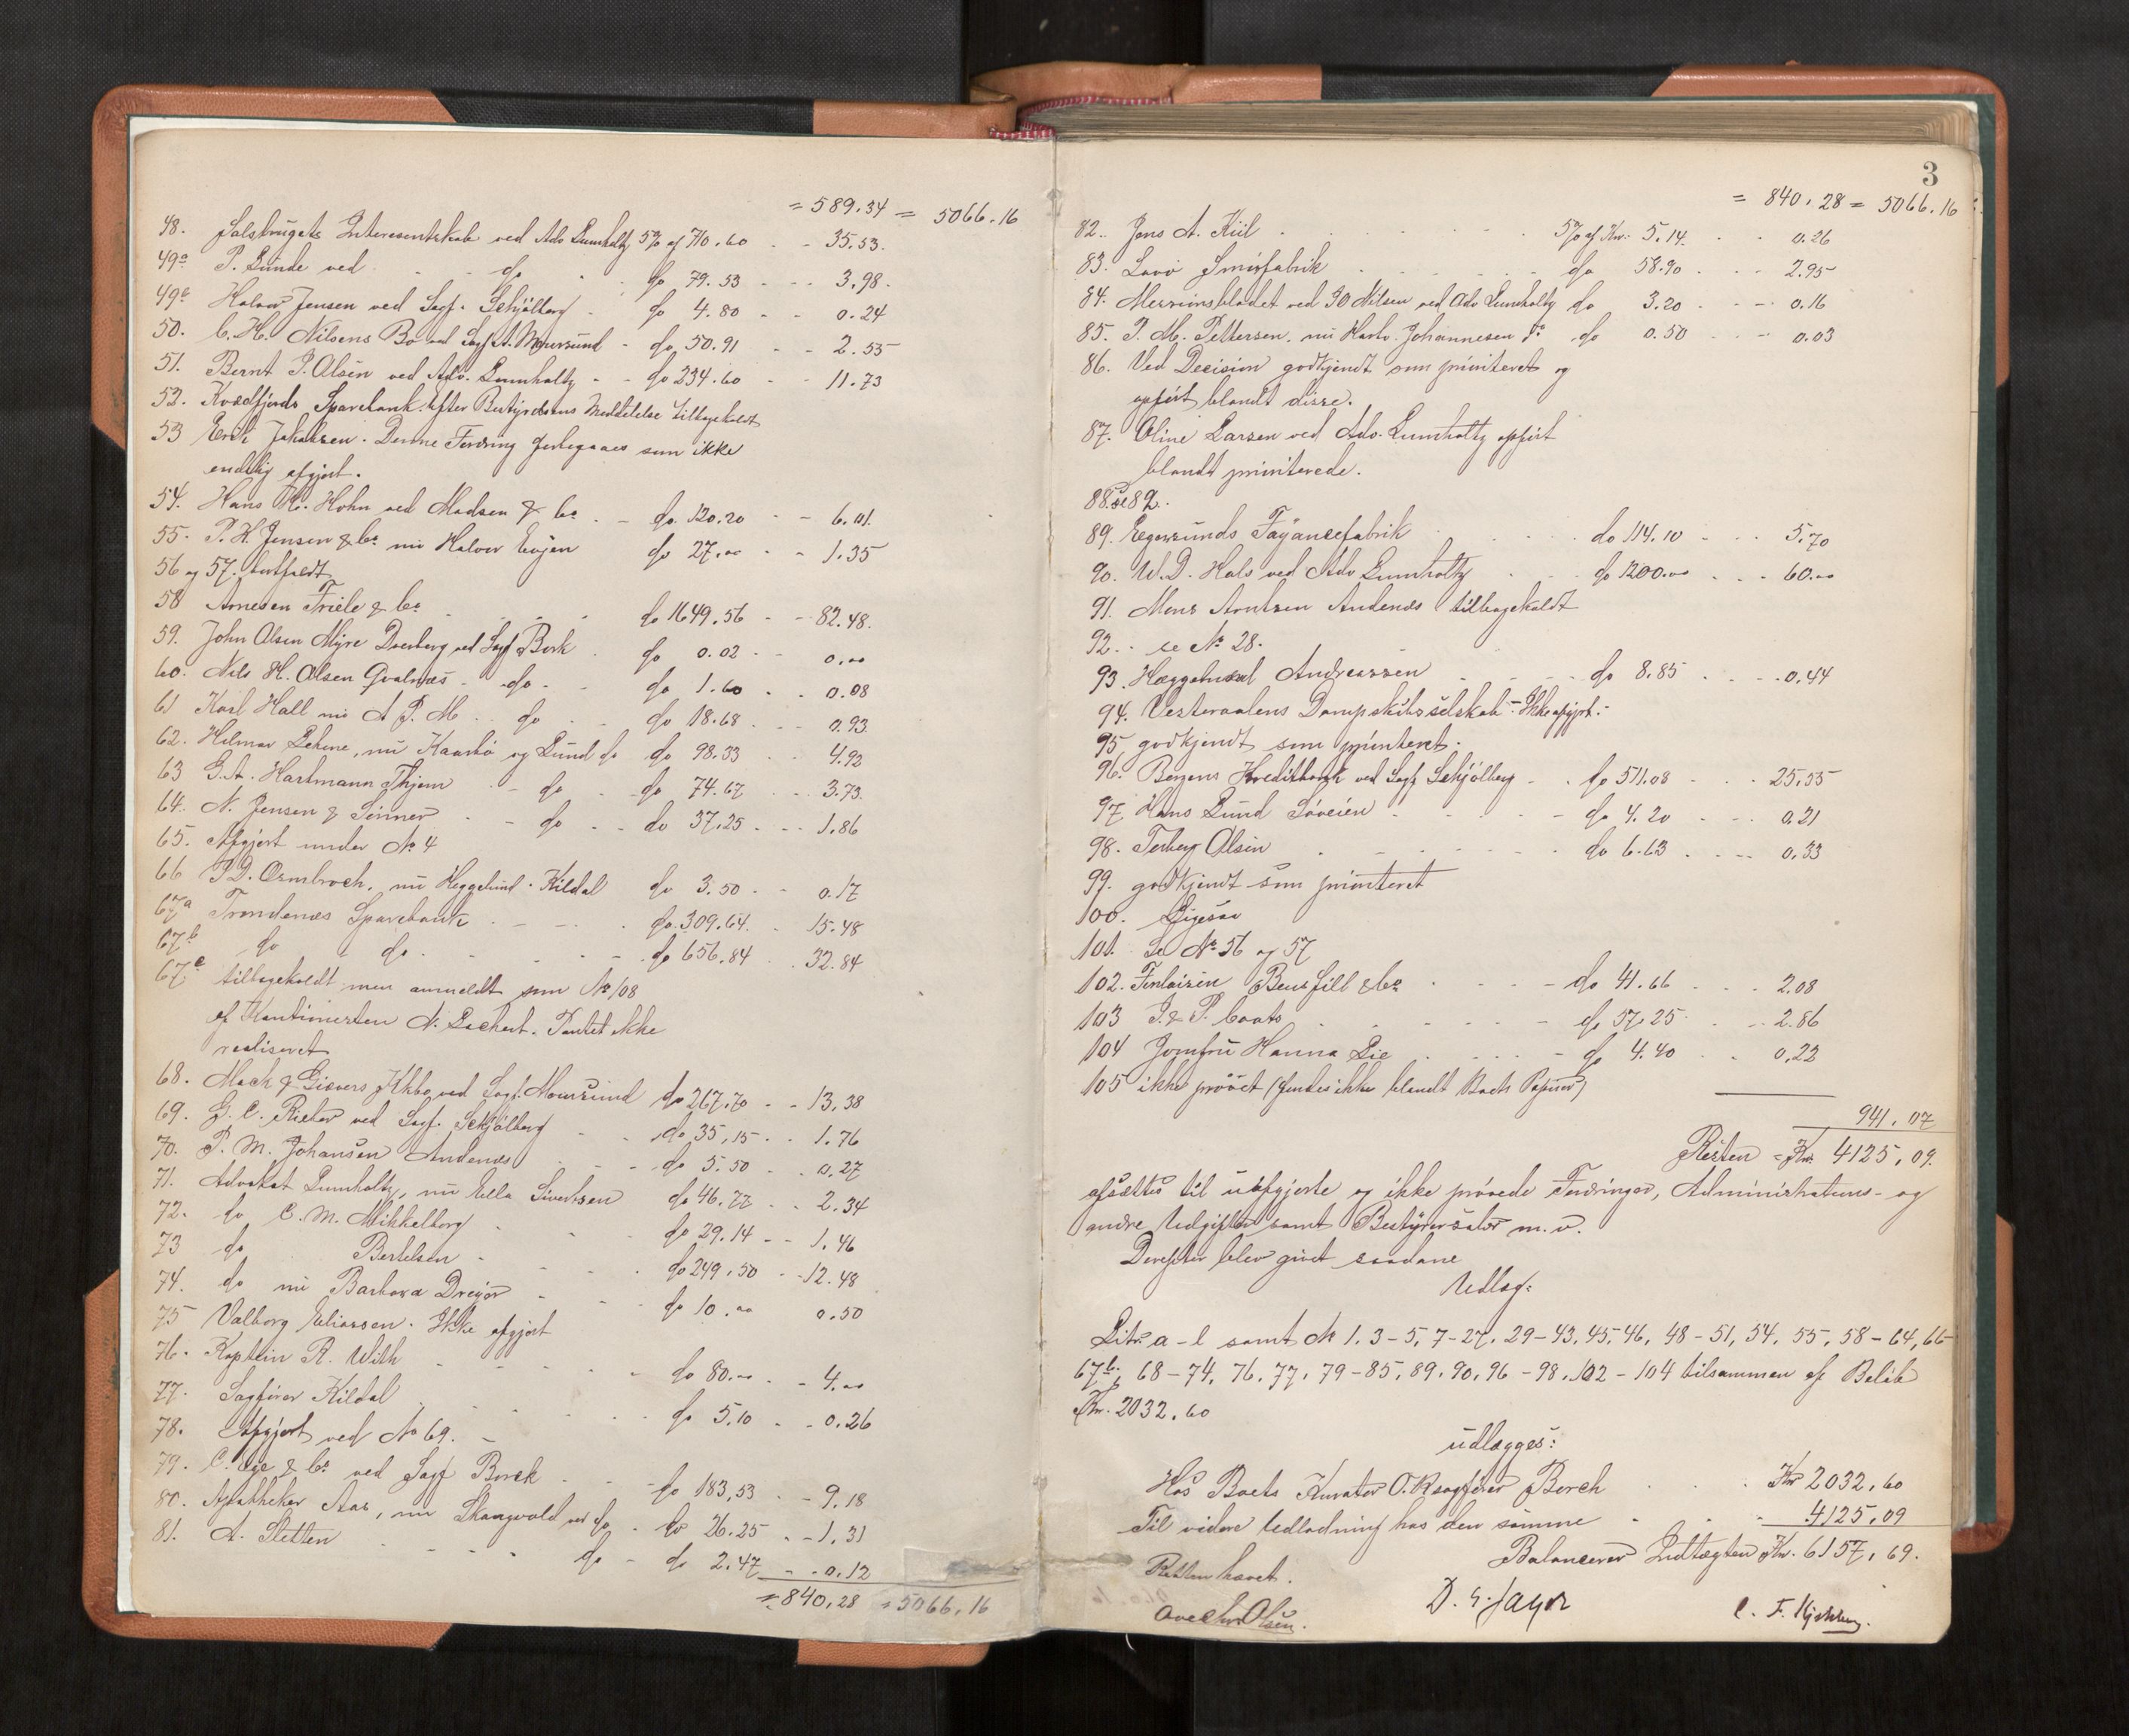 = 589.34 = 5066.16
48. Salsbrugets Interesentskab ved Adv Lumholtz 5% af 710.60 - - 35.53.
49a P. Lunde ved - - do - do 79.53 - - - 3,98.
49b Halvor Jensen ved Sagf. Schjölberg - do 4.80 - - 0.24
50. C. H. Nilsens Bo ved Sagf. A. Moursund - do 50.91 - - 2.55
51. Bernt J. Olsen ved Adv. Lumholtz - - do 234.60 - - 11.73
52. Kvædfjords Sparebank. Efter Bestyrelsens Meddelelse tilbagekaldt
53 Erik Jakobsen. Denne Fordring forbigaaes som ikke
endelig afgjort.
54. Hans H. Hohn ved Madsen & Co - - do 120.20 - - 6.01.
55. P. H. Jensen & Co nu Halvor Evjen do 27.00 - - 1.35
56 og 57. bortfaldt
58 Arnesen Friele & Co - - - do 1649.56 - - 82.48.
59. John Olsen Myre Dverberg ved Sagf Bork do 0.02 - - 0.00
60. Nils H. Olsen Qvalnæs - do - do 1.60 - - 0.08
61 Karl Hall nu A P. M. - do - - do 18.68 - - 0.93
62. Hilmar Lehne, nu Kaarbö og Lund do do 98.33 - - 4.92
63 G. A. Hartmann Thjem - do - do 74.67 - - 3.73.
64. N. Jensen & Sönner - - do - - do 37.25 - - - 1.86
65. Afgjort under No 4
66 P D. Ormbroch, nu Heggelund - Kildal do 3.50 - - 0.17
67a Trondenæs Sparebank - - - do. 309.64. - 15.48
67b do do. - - - - do 656.84 - 32.84
67c tilbagekaldt men anmeldt som No 108
af Kautionisten N. Lockert. Pantet ikke
realiseret
68. Mack & Gievers Iktbo ved Sagf. Moursund do 267.70 - - 13.38
69. G. C. Rieber ved Sagf. Schjölberg - - do 35,15 - - 1.76
70. P. M. Johansen Andenæs - - do 5.50 - - 0.27
71. Advokat Lumholtz, nu Ella Sivertsen do 46.77 - - 2.34
72. do C. M. Mikkelborg - - do 29.14 - - 1.46
73 do Bertelsen - - - do 249.50 - - 12.48
74. do nu Barbara Dreyer - - do 10.00 0.50
75 Valborg Eliassen. Ikke afgjort
76. Kaptein R. With - - - - do 80.00 - - 4.00
77. Sagförer Kildal - - - - do 5.10 - - 0.26
78. Afgjort ved No 69. -
79. C. Lie & Co ved Sagf Borch - - - do 183,53 - - 9.18
80. Apotheker Aas, nu Skougvold ved do - do 26.25 - - 1.31
81. A. Sletten - - - - do - do 2.47 - - 0.12
= 840,28 = 5066,16
3
= 840.28 = 5066.16
82. Jens A. Kiil - - - - 5% af Kr. 5.14. - - 0.26
83. Lavö Smörfabrik - - - - do 58.90 - - - 2.95
84. Missionsbladet ved J O Nilsen ved Adv Lumholtz do 3.20 - - - 0.16
85. P. M. Pettersen, nu Harb. Johannesen do do 0.50 - - - 0.03
86. Ved Decision godkjendt som prioriteret og
opfört blandt disse.
87. Oline Larsen ved Adv. Lumholtz opfört
blandt prioriterede.
88. se 82.
89. Egersunds Fayancefabrik - - - do 114.10 - - - 5.70
90. W. D. Hals ved Adv Lumholtz - - do 1200.00 - - - 60.00
91. Mons Arntsen Andenæs tilbagekaldt
92. - se No 28.
93. Hæggelund Andreassen - - - do 8.85 - - - 0.44
94. Vesteraalens Dampskibsselskab - Ikke afgjort. -
95 godkjendt som prioriteret.
96. Bergens Kreditbank ved Sagf Schjölberg - - do 511.08 - - 25.55
97 Hans Lund Söveien - - - do 4.20 - - - 0.21
98. Torberg Olsen - - - - do 6.63 - - - 0.33
99. godkjendt som prioriteret
100. Ligesaa
101. Se No 56 og 57
102. Finlaisen Bensfill & Co - - - do 41.66 - - - 2.08
103 J. & P. Coats - - - - do 57.25 - - - 2.86
104 Jomfru Hanna Lie - - - - do 4.40 - - 0.22
105 ikke prövet (findes ikke blandt Boets Papirer)
941.07
Resten = Kr. 4125,09.
afsættes til uafgjorte og ikke prövede Fordringer, Administrations- og
andre Udgifter samt Bestyrersalær m. v.
Derefter blev givet saadane
Udlæg:
Litr. a - l samt No 1. 3 - 5, 7 - 27. 29 - 43. 45. 46, 48 - 51, 54. 55, 58 - 64, 66
67b, 68 - 74. 76. 77. 79 - 85, 89. 90. 96 - 98. 102 - 104 tilsammen af Belöb
Kr. 2032.60
udlægges:
Hos Boets Kurator O. R. sagförer Borch - - - Kr 2032,60
Til videre Udlodning hos den samme - - - 4125,09
Balancerer Indtægten Kr. 6157,69.
Retten hævet.
Ove Chr Olsen. D. S. Jager C. F.